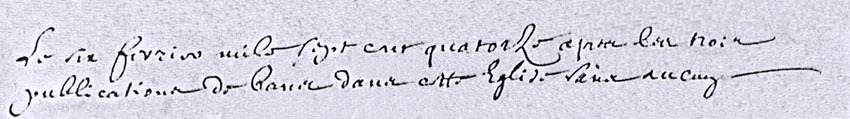 Le six fevrier mile sept cent quatorze apres les trois
publications de bans dans cette Eglise sans aucun